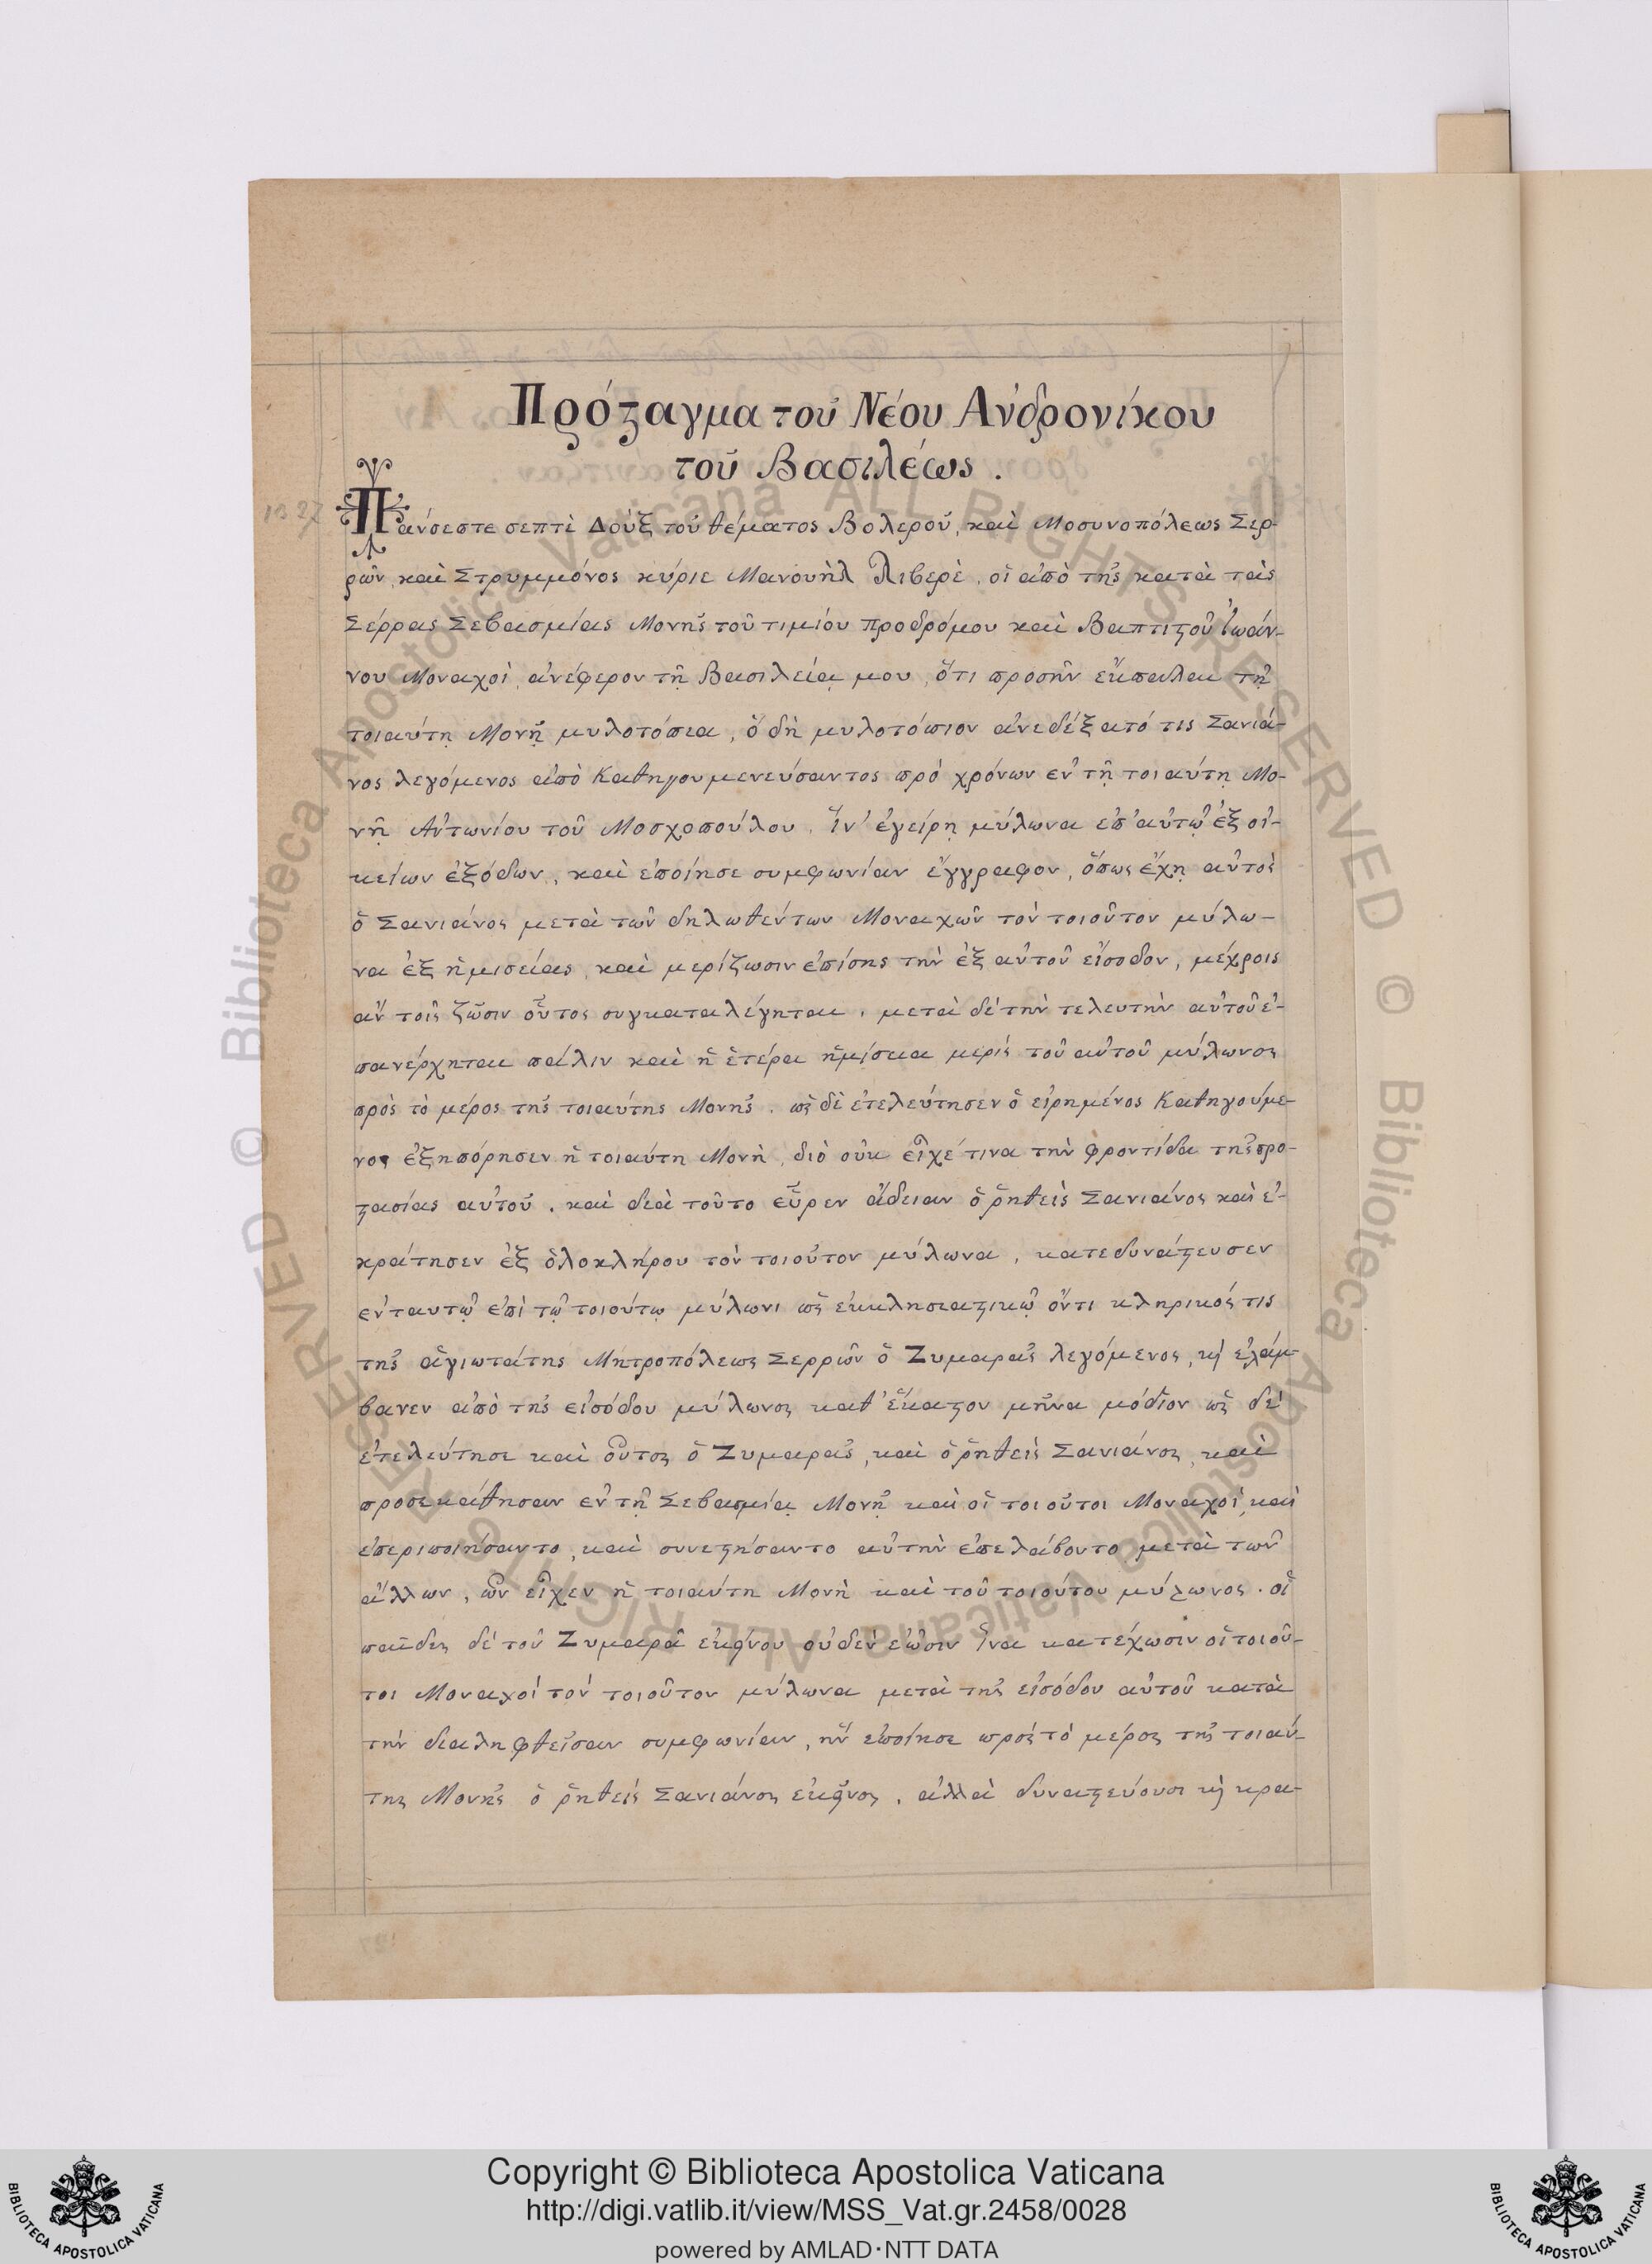 Πρόσταγμα τοῦ Νέου Ἀνδρονίκου
τοῦ Βασιλέως.
1327
Πανσεστε σεπτὲ Δοὺξ τοῦ θέματος Βολεροῦ, καὶ Μοσυνοπόλεως Σερ-
ρῶν, καὶ Στρυμμόνος κύριε Μανουὴλ Λιβερὲ, οἱ ἀπὸ τῆς κατὰ τὰς
Σέρρας Σεβασμίας Μονῆς τοῦ τιμίου προδρόμου καὶ Βαπτιστοῦ Ἰωάν-
νου Μοναχοὶ, ἀνέφερον τῇ Βασιλείᾳ μου, ὅτι προσῆν ἔκπαλαι τῇ
τοιαύτῃ Μονῇ μυλοτόπια, ὃ δὴ μυλοτόπιον ἀνεδέξατό τις Σανιά-
νος λεγόμενος ἀπὸ Καθηγουμενεύσαντος πρὸ χρόνων ἐν τῇ τοιαύτῃ Μο-
νῇ Ἀντωνίου τοῦ Μοσχοπούλου, ἵν' ἐγείρῃ μύλωνα ἐπ' αὐτῷ ἐξ οἰ-
κείων ἐξόδων, καὶ ἐποίησε συμφωνίαν ἔγγραφον, ὅπως ἔχῃ αὐτὸς
ὁ Σανιάνος μετὰ τῶν δηλωθέντων Μοναχῶν τὸν τοιοῦτον μύλω-
να ἐξ ἡμισείας, καὶ μερίζωσιν ἐπίσης τὴν ἐξ αὐτοῦ εἴσοδον, μέχροις
ἂν τοῖς ζῶσιν οὗτος συγκαταλέγηται, μετὰ δὲ τὴν τελευτὴν αὐτοῦ ἐ-
πανέρχηται πάλιν καὶ ἡ ἑτέρα ἡμίσεια μερὶς τοῦ αὐτοῦ μύλωνος
πρὸς τὸ μέρος τῆς τοιαύτης Μονῆς. ὡς δὲ ἐτελεύτησεν ὁ εἰρημένος Καθηγούμε-
νος ἐξηπόρησεν ἡ τοιαύτη Μονὴ, διὸ οὐκ εἶχέ τινα τὴν φροντίδα τῆς προ-
στασίας αὐτοῦ. καὶ διὰ τοῦτο εὗρεν ἄδειαν ὁ ῥηθεὶς Σανιάνος καὶ ἐ-
κράτησεν ἐξ ὁλοκλήρου τὸν τοιοῦτον μύλωνα, κατεδυνάστευσεν
ἐν ταυτῷ ἐπὶ τῷ τοιούτῳ μύλωνι ὡς ἐκκλησιαστικῷ ὄντι κληρικός τις
τῆς ἁγιωτάτης Μητροπόλεως Σερρῶν ὁ Ζυμαρᾶς λεγόμενος, κὶ ἐλάμ-
βανεν ἀπὸ τῆς εἰσόδου μύλωνος καθ' ἕκαστον μῆνα μόδιον ὡς δὲ
ἐτελεύτησε καὶ οὗτος ὁ Ζυμαρᾶς, καὶ ὁ ῥηθεὶς Σανιάνος, καὶ
προσεκάθησαν ἐν τῇ Σεβασμίᾳ Μονῇ καὶ οἱ τοιοῦτοι Μοναχοὶ, καὶ
ἐπεριποιήσαντο, καὶ συνεστήσαντο αὐτὴν ἐπελάβοντο μετὰ τῶν
ἄλλων, ὧν εἶχεν ἡ τοιαύτη Μονὴ καὶ τοῦ τοιούτου μύλωνος. οἱ
παῖδες δὲ τοῦ Ζυμαρᾶ ἐκείνου οὐδὲν ἐῶσιν ἵνα κατέχωσιν οἱ τοιοῦ-
τοι Μοναχοὶ τὸν τοιοῦτον μύλωνα μετὰ τῆς εἰσόδου αὐτοῦ κατὰ
τὴν διαληφθεῖσαν συμφωνίαν, ἣν ἐποίησε πρὸς τὸ μέρος τῆς τοιαύ-
της Μονῆς ὁ ῥηθεὶς Σανιάνος ἐκεῖνος, ἀλλὰ δυναστεύουσι κὶ κρα-
Copyright © Biblioteca Apostolica Vaticana
http://digi.vatlib.it/view/MSS_Vat.gr.2458/0028
powered by AMLAD·NTT DATA